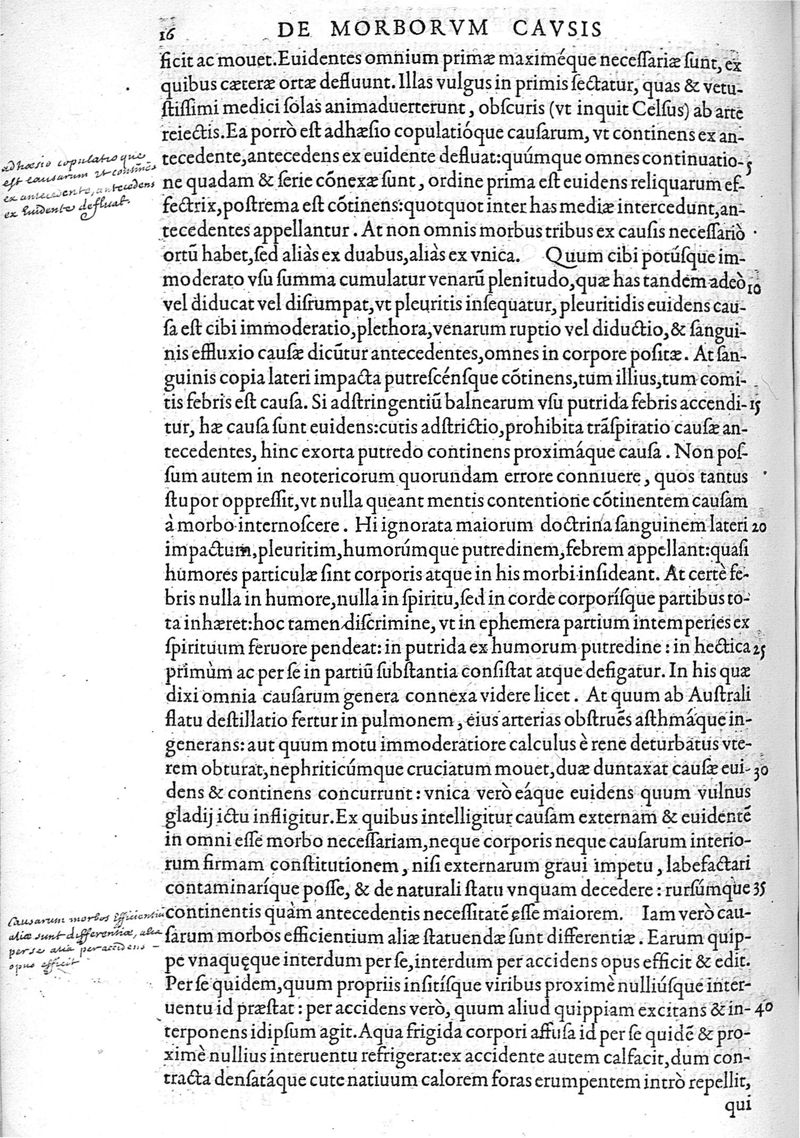 16 DE MORBORVM CAVSIS
ficit ac mouet. Euidentes omnium primæ maximéque necessariæ sunt, ex
quibus cæteræ ortæ defluunt. Illas vulgus in primis sectatur, quas & vetu-
stissimi medici solas animaduerterunt, obscuris (vt inquit Celsus) ab arte
reiectis. Ea porrò est adhæsio copulatióque causarum, vt continens ex an-
tecedente, antecedens ex euidente defluat: quúmque omnes continuatio- 5
ne quadam & serie cōnexæ sunt, ordine prima est euidens reliquarum ef-
fectrix, postrema est cōtinens: quotquot inter has mediæ intercedunt, an-
tecedentes appellantur. At non omnis morbus tribus ex causis necessariò
ortū habet, sed aliàs ex duabus, aliàs ex vnica. Quum cibi potúsque im-
moderato vsu summa cumulatur venarū plenitudo, quæ has tandem adeò 10
vel diducat vel disrumpat, vt pleuritis insequatur, pleuritidis euidens cau-
sa est cibi immoderatio, plethora, venarum ruptio vel diductio, & sangui-
nis effluxio causæ dicūtur antecedentes, omnes in corpore positæ. At san-
guinis copia lateri impacta putrescénsque cōtinens, tum illius, tum comi-
tis febris est causa. Si adstringentiū balnearum vsu putrida febris accendi- 15
tur, hæ causa sunt euidens: cutis adstrictio, prohibita trāspiratio causæ an-
tecedentes, hinc exorta putredo continens proximáque causa. Non pos-
sum autem in neotericorum quorundam errore conniuere, quos tantus
stupor oppressit, vt nulla queant mentis contentione cōtinentem causam
à morbo internoscere. Hi ignorata maiorum doctrina sanguinem lateri 20
impactum, pleuritim, humorúmque putredinem, febrem appellant: quasi
humores particulæ sint corporis atque in his morbi insideant. At certè fe-
bris nulla in humore, nulla in spiritu, sed in corde corporísque partibus to-
ta inhæret: hoc tamen discrimine, vt in ephemera partium intemperies ex
spirituum feruore pendeat: in putrida ex humorum putredine: in hectica 25
primùm ac per se in partiū substantia consistat atque defigatur. In his quæ
dixi omnia causarum genera connexa videre licet. At quum ab Australi
flatu destillatio fertur in pulmonem, eius arterias obstruēs asthmáque in-
generans: aut quum motu immoderatiore calculus è rene deturbatus vre-
rem obturat, nephriticúmque cruciatum mouet, duæ duntaxat causæ eui- 30
dens & continens concurrunt: vnica verò eáque euidens quum vulnus
gladij ictu infligitur. Ex quibus intelligitur causam externam & euidentē
in omni esse morbo necessariam, neque corporis neque causarum interio-
rum firmam constitutionem, nisi externarum graui impetu, labefactari
contaminaríque posse, & de naturali statu vnquam decedere: rursúmque 35
continentis quàm antecedentis necessitatē esse maiorem. Iam verò cau-
sarum morbos efficientium aliæ statuendæ sunt differentiæ. Earum quip-
pe vnaquęque interdum per se, interdum per accidens opus efficit & edit.
Per se quidem, quum propriis insitísque viribus proximè nulliúsque inter-
uentu id præstat: per accidens verò, quum aliud quippiam excitans & in- 40
terponens idipsum agit. Aqua frigida corpori affusa id per se quidē & pro-
ximè nullius interuentu refrigerat: ex accidente autem calfacit, dum con-
tracta densatáque cute natiuum calorem foras erumpentem intrò repellit,
qui
adhæsio copulatio que
est causarum ut continens
ex antecedente, antecedens
ex Euidente defluat
Causarum morbos Efficientium
aliæ sunt differentiæ, aliæ
per se aliæ per accidens
opus efficit